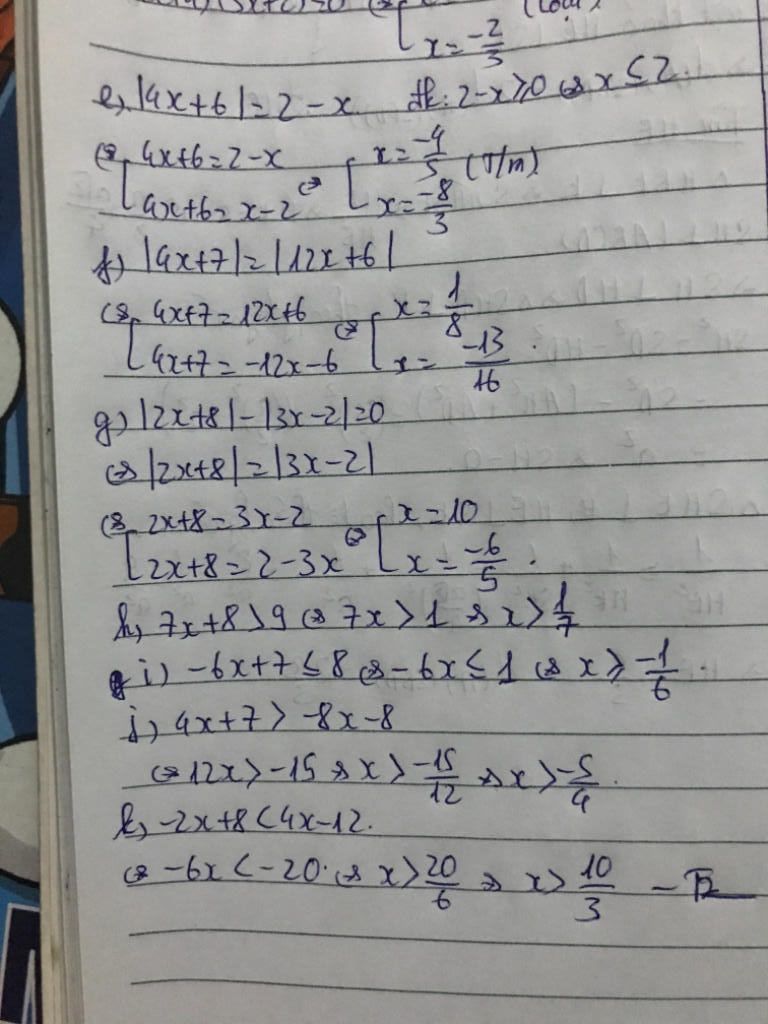 x = -2/3
e) |4x+6| = 2 - x đk: 2-x ≥ 0 ⇔ x ≤ 2
⇔ [ 4x+6 = 2-x ⇔ [ x = -4/5 (T/m)
4x+6 = x-2 x = -8/3
f) |4x+7| = |12x+6|
⇔ [ 4x+7 = 12x+6 ⇔ [ x = 1/8
4x+7 = -12x-6 x = -13/16.
g) |2x+8| - |3x-2| = 0
⇔ |2x+8| = |3x-2|
⇔ [ 2x+8 = 3x-2 ⇔ [ x = 10
2x+8 = 2-3x x = -6/5.
h, 7x+8 > 9 ⇔ 7x > 1 ⇔ x > 1/7
i) -6x+7 ≤ 8 ⇔ -6x ≤ 1 ⇔ x ≥ -1/6.
j, 4x+7 > -8x-8
⇔ 12x > -15 ⇔ x > -15/12 ⇔ x > -5/4.
k, -2x+8 < 4x-12.
⇔ -6x < -20. ⇔ x > 20/6 ⇔ x > 10/3